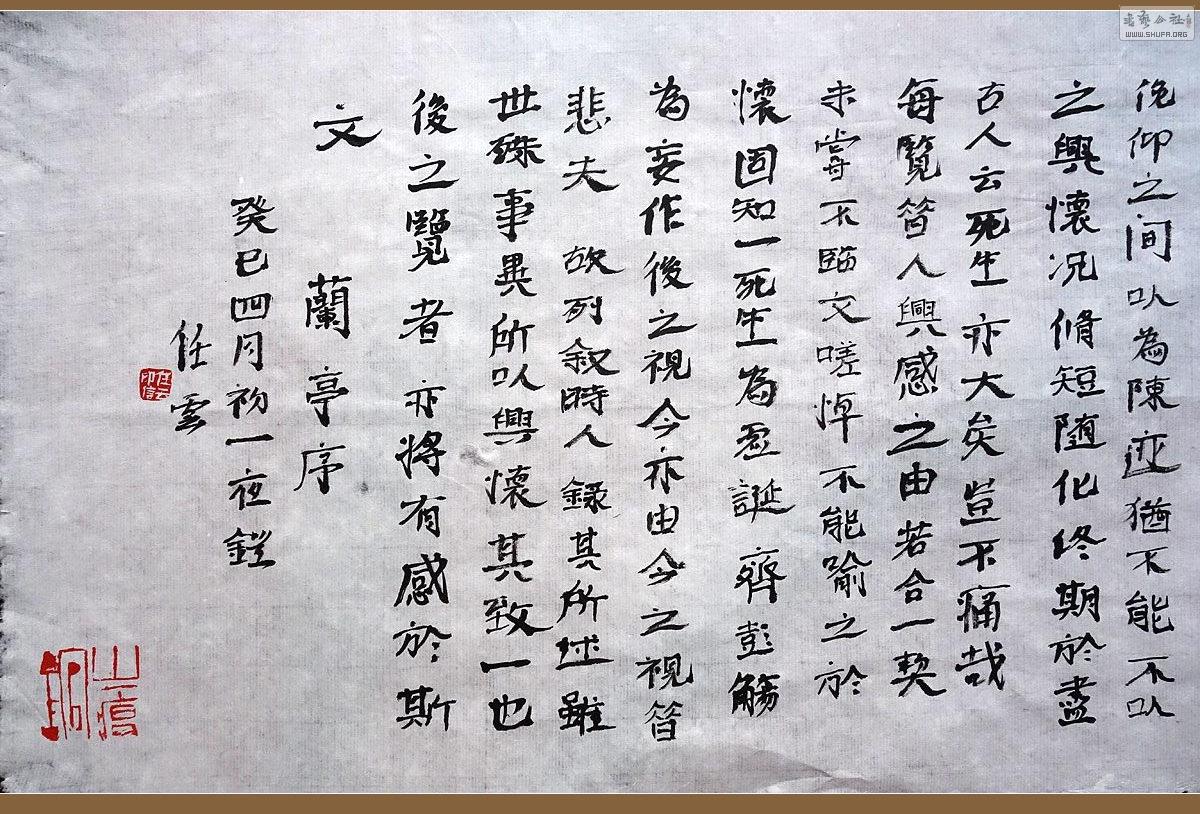 俛仰之間以為陳迹猶不能不以
之興懷况脩短随化終期於盡
古人云死生亦大矣豈不痛哉
每覽昔人興感之由若合一契
未嘗不臨文嗟悼不能喻之於
懷固知一死生為虛誕齊彭殤
為妄作後之視今亦由今之視昔
悲夫 故列叙時人錄其所述雖
世殊事異所以興懷其致一也
後之覽者亦將有感於斯
文 蘭亭序
癸巳四月初一夜鐙
任雲
任云印信
WWW.SHUFA.ORG